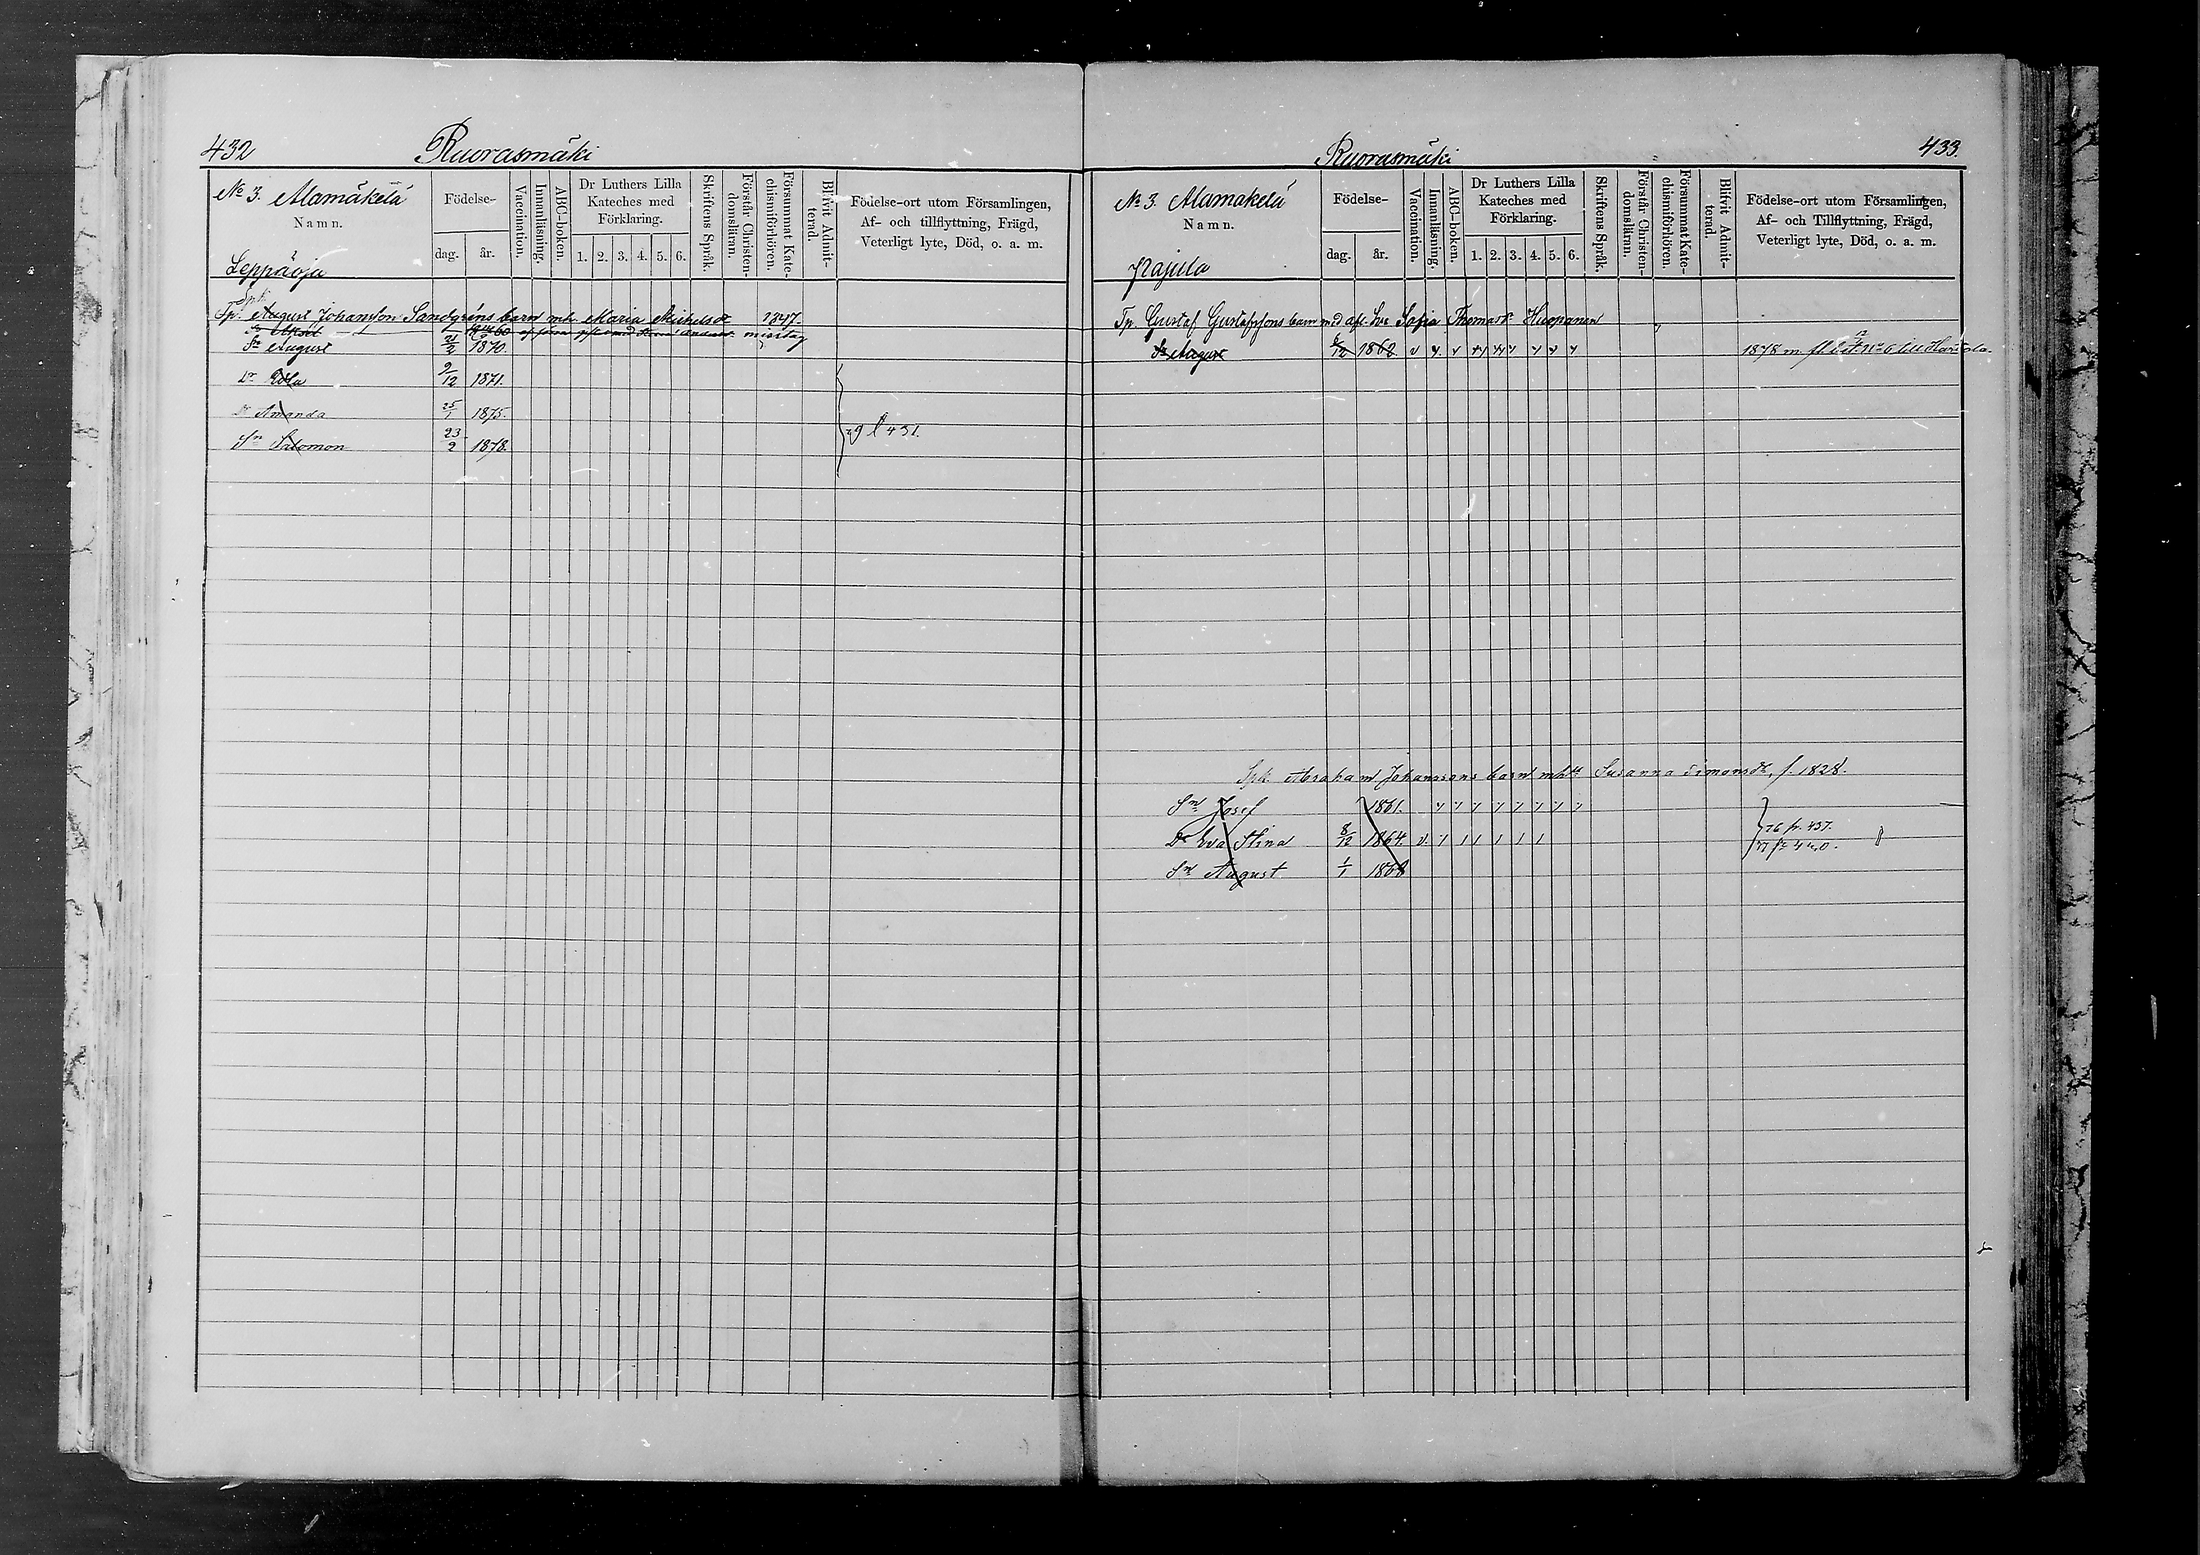 432 Ruorasmäki
No 3. Alamäkelä
Namn.
Leppäoja
Födelse-
dag. år.
Vaccination.
Innanläsning.
ABC-boken.
Dr Luthers Lilla
Kateches med
Förklaring.
1. 2. 3. 4. 5. 6.
Skriftens Språk.
Förstår Christen-
domsläran.
Försummat Kate-
chismiförhören.
Blifvit Admit-
terad.
Födelse-ort utom Församlingen,
Af- och tillflyttning, Frägd,
Veterligt lyte, Död, o. a. m.
Tp. August Johansson Sandgréns barn mh Maria Michelsdr 1847.
Sn August 21/2 1870.
Dr Edla 9/12 1871.
Dr Amanda 25/1 1875.
Sn Salomon 23/2 1878.
79 l 431.
Ruorasmäki 433.
No 3. Alamäkelä
Namn.
Pajula
Födelse-
dag. år.
Vaccination.
Innanläsning.
ABC-boken.
Dr Luthers Lilla
Kateches med
Förklaring.
1. 2. 3. 4. 5. 6.
Skriftens Språk.
Förstår Christen-
domsläran.
Försummat Kate-
chismiförhören.
Blifvit Admit-
terad.
Födelse-ort utom Församlingen,
Af- och Tillflyttning, Frägd,
Veterligt lyte, Död, o. a. m.
Tp. Gustaf Gustafssons barn med afl. hu Sofia Thomasdr Huopanen
Sn August 1862 1878 m. fl.
Sph. Abraham Johanssons barn mh Susanna Simonsdr, f. 1828.
Sn Josef 1861.
Dr Eva Stina 8/12 1864.
Sn August 1/1 1868
76 fr. 437.
77 fr 440.